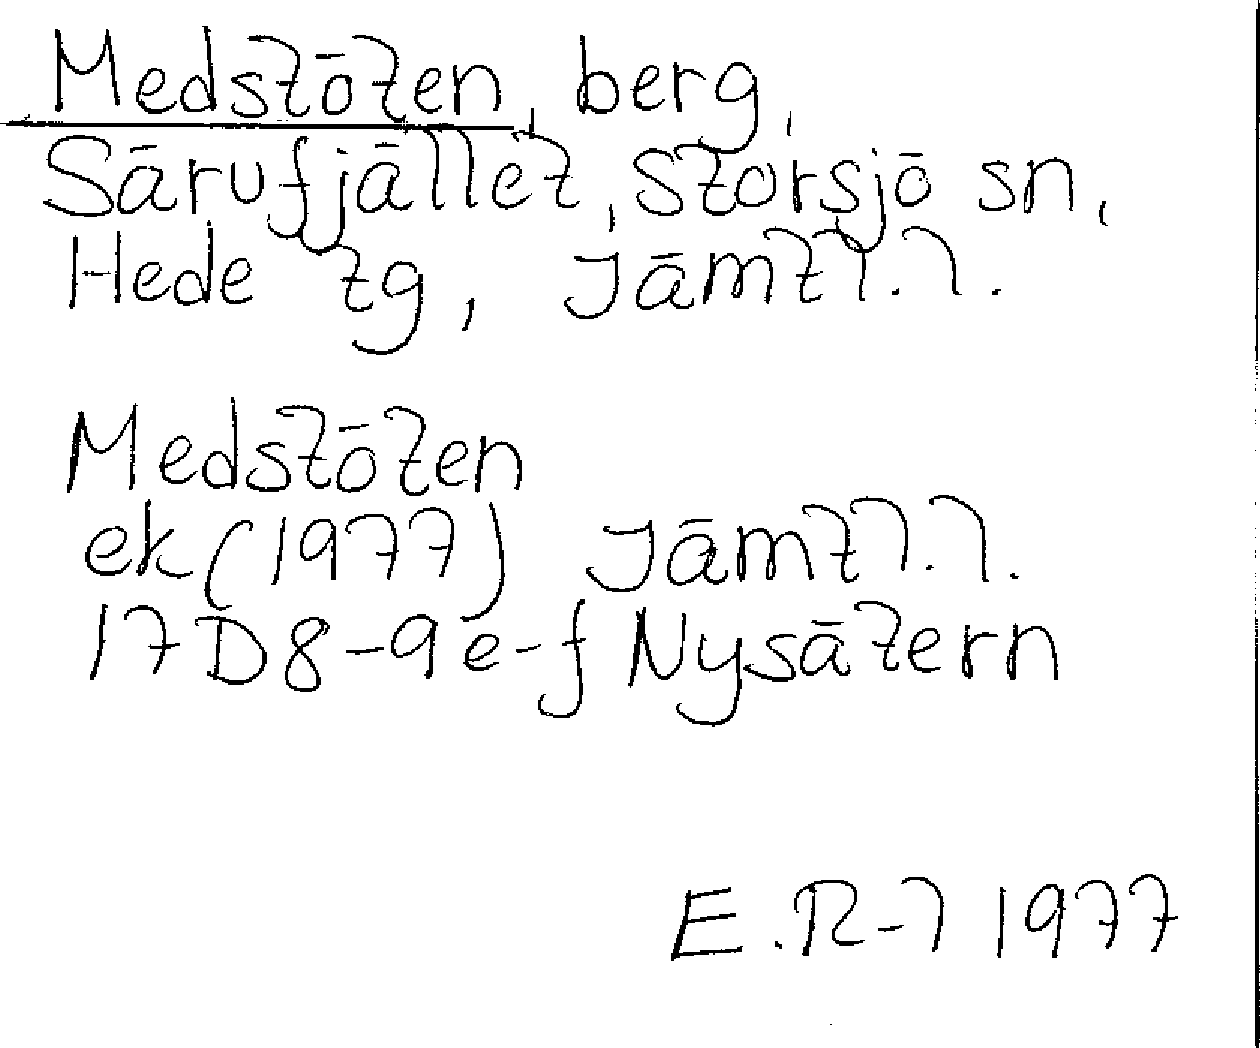 Medstöten, berg,
Särufjället, Storsjö sn,
Hede tg, Jämtl. l.
Medstöten
ek (1977) Jämtl. l.
17D8-9e-f Nysätern
E.R-l 1977